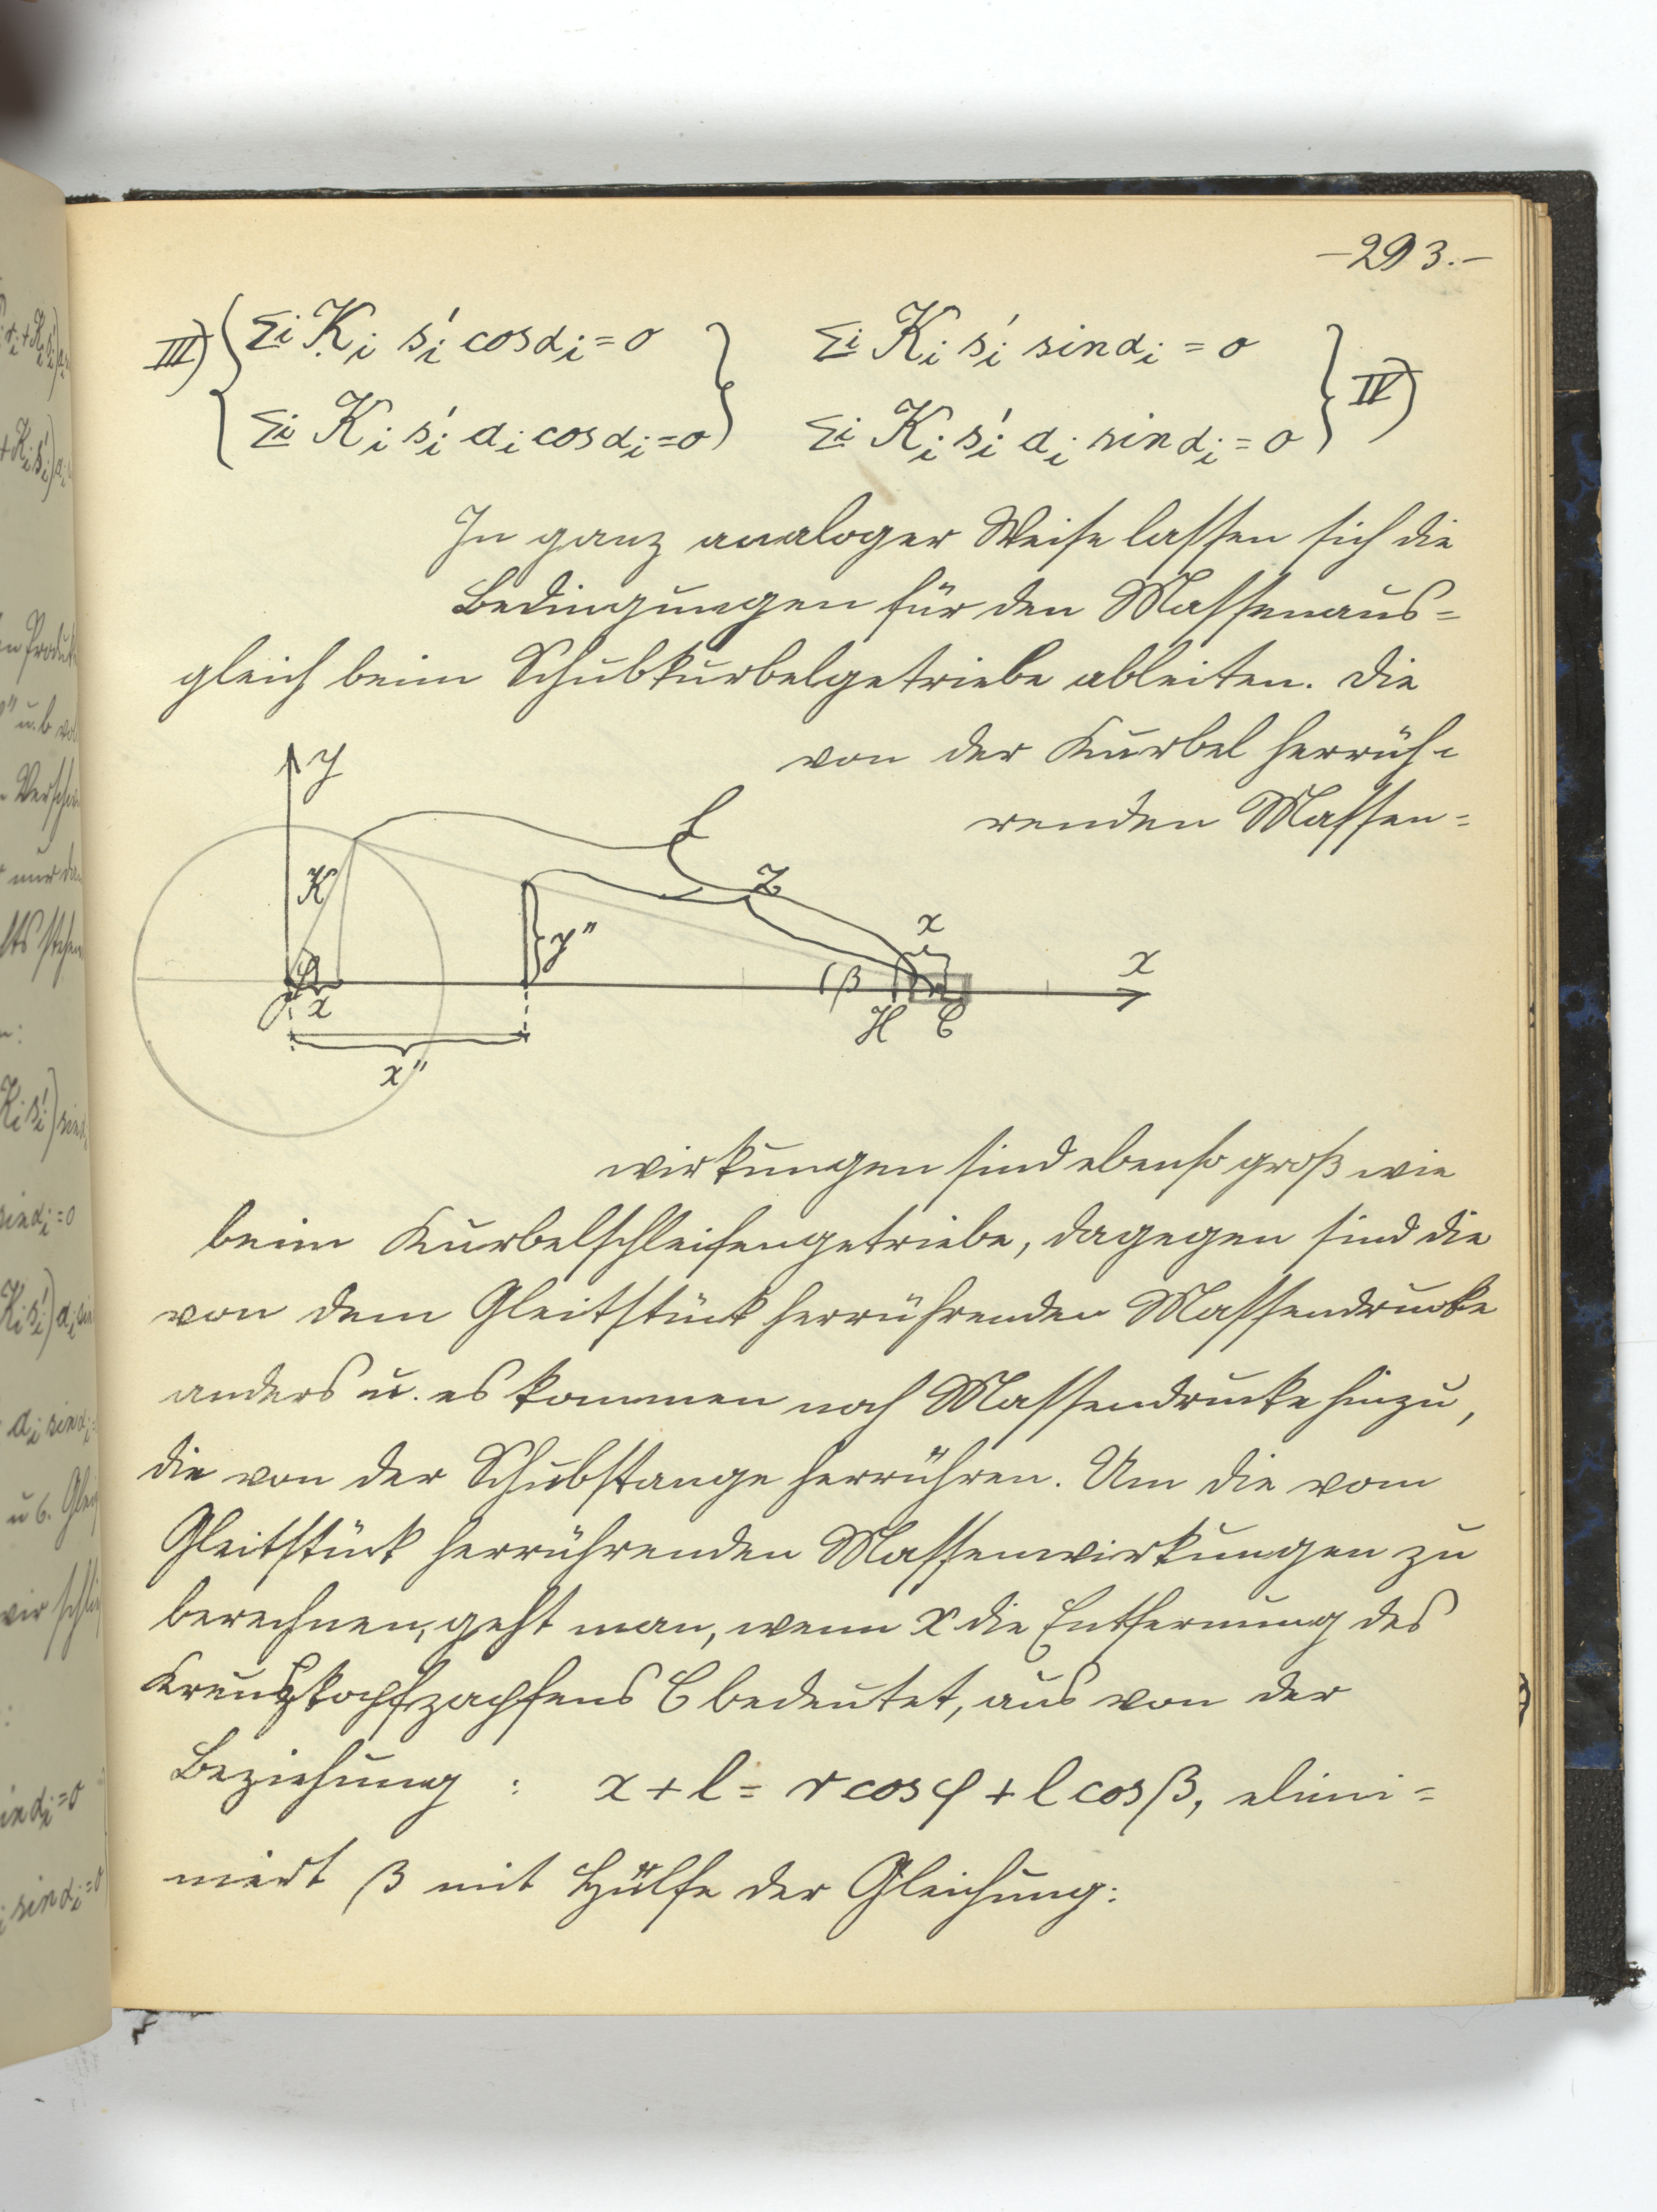 -293.-
III) { Σi Ki si' cosαi = 0 } Σi Ki si' sinαi = 0 } IV)
{ Σi Ki si' ai cosαi = 0 } Σi Ki si' ai sinαi = 0 }
In ganz analoger Weise lassen sich die
Bedingungen für den Massenaus=
gleich beim Schubkurbelgetriebe ableiten. Die
von der Kurbel herrüh=
renden Massen=
y
l
K
Z
y"
x
β
x
φ
O
x
H
C
x"
wirkungen sind ebenso groß wie
beim Kurbelschleifengetriebe, dagegen sind die
von dem Gleitstück herrührenden Massendrucke
anders u. es kommen noch Massendrucke hinzu,
die von der Schubstange herrühren. Um die vom
Gleitstück herrührenden Massenwirkungen zu
berechnen, geht man, wenn x die Entfernung des
Kreuzkopfzapfens C bedeutet, aus von der
Beziehung : x + l = r cosφ + l cosβ, elimi=
niert β mit Hülfe der Gleichung: